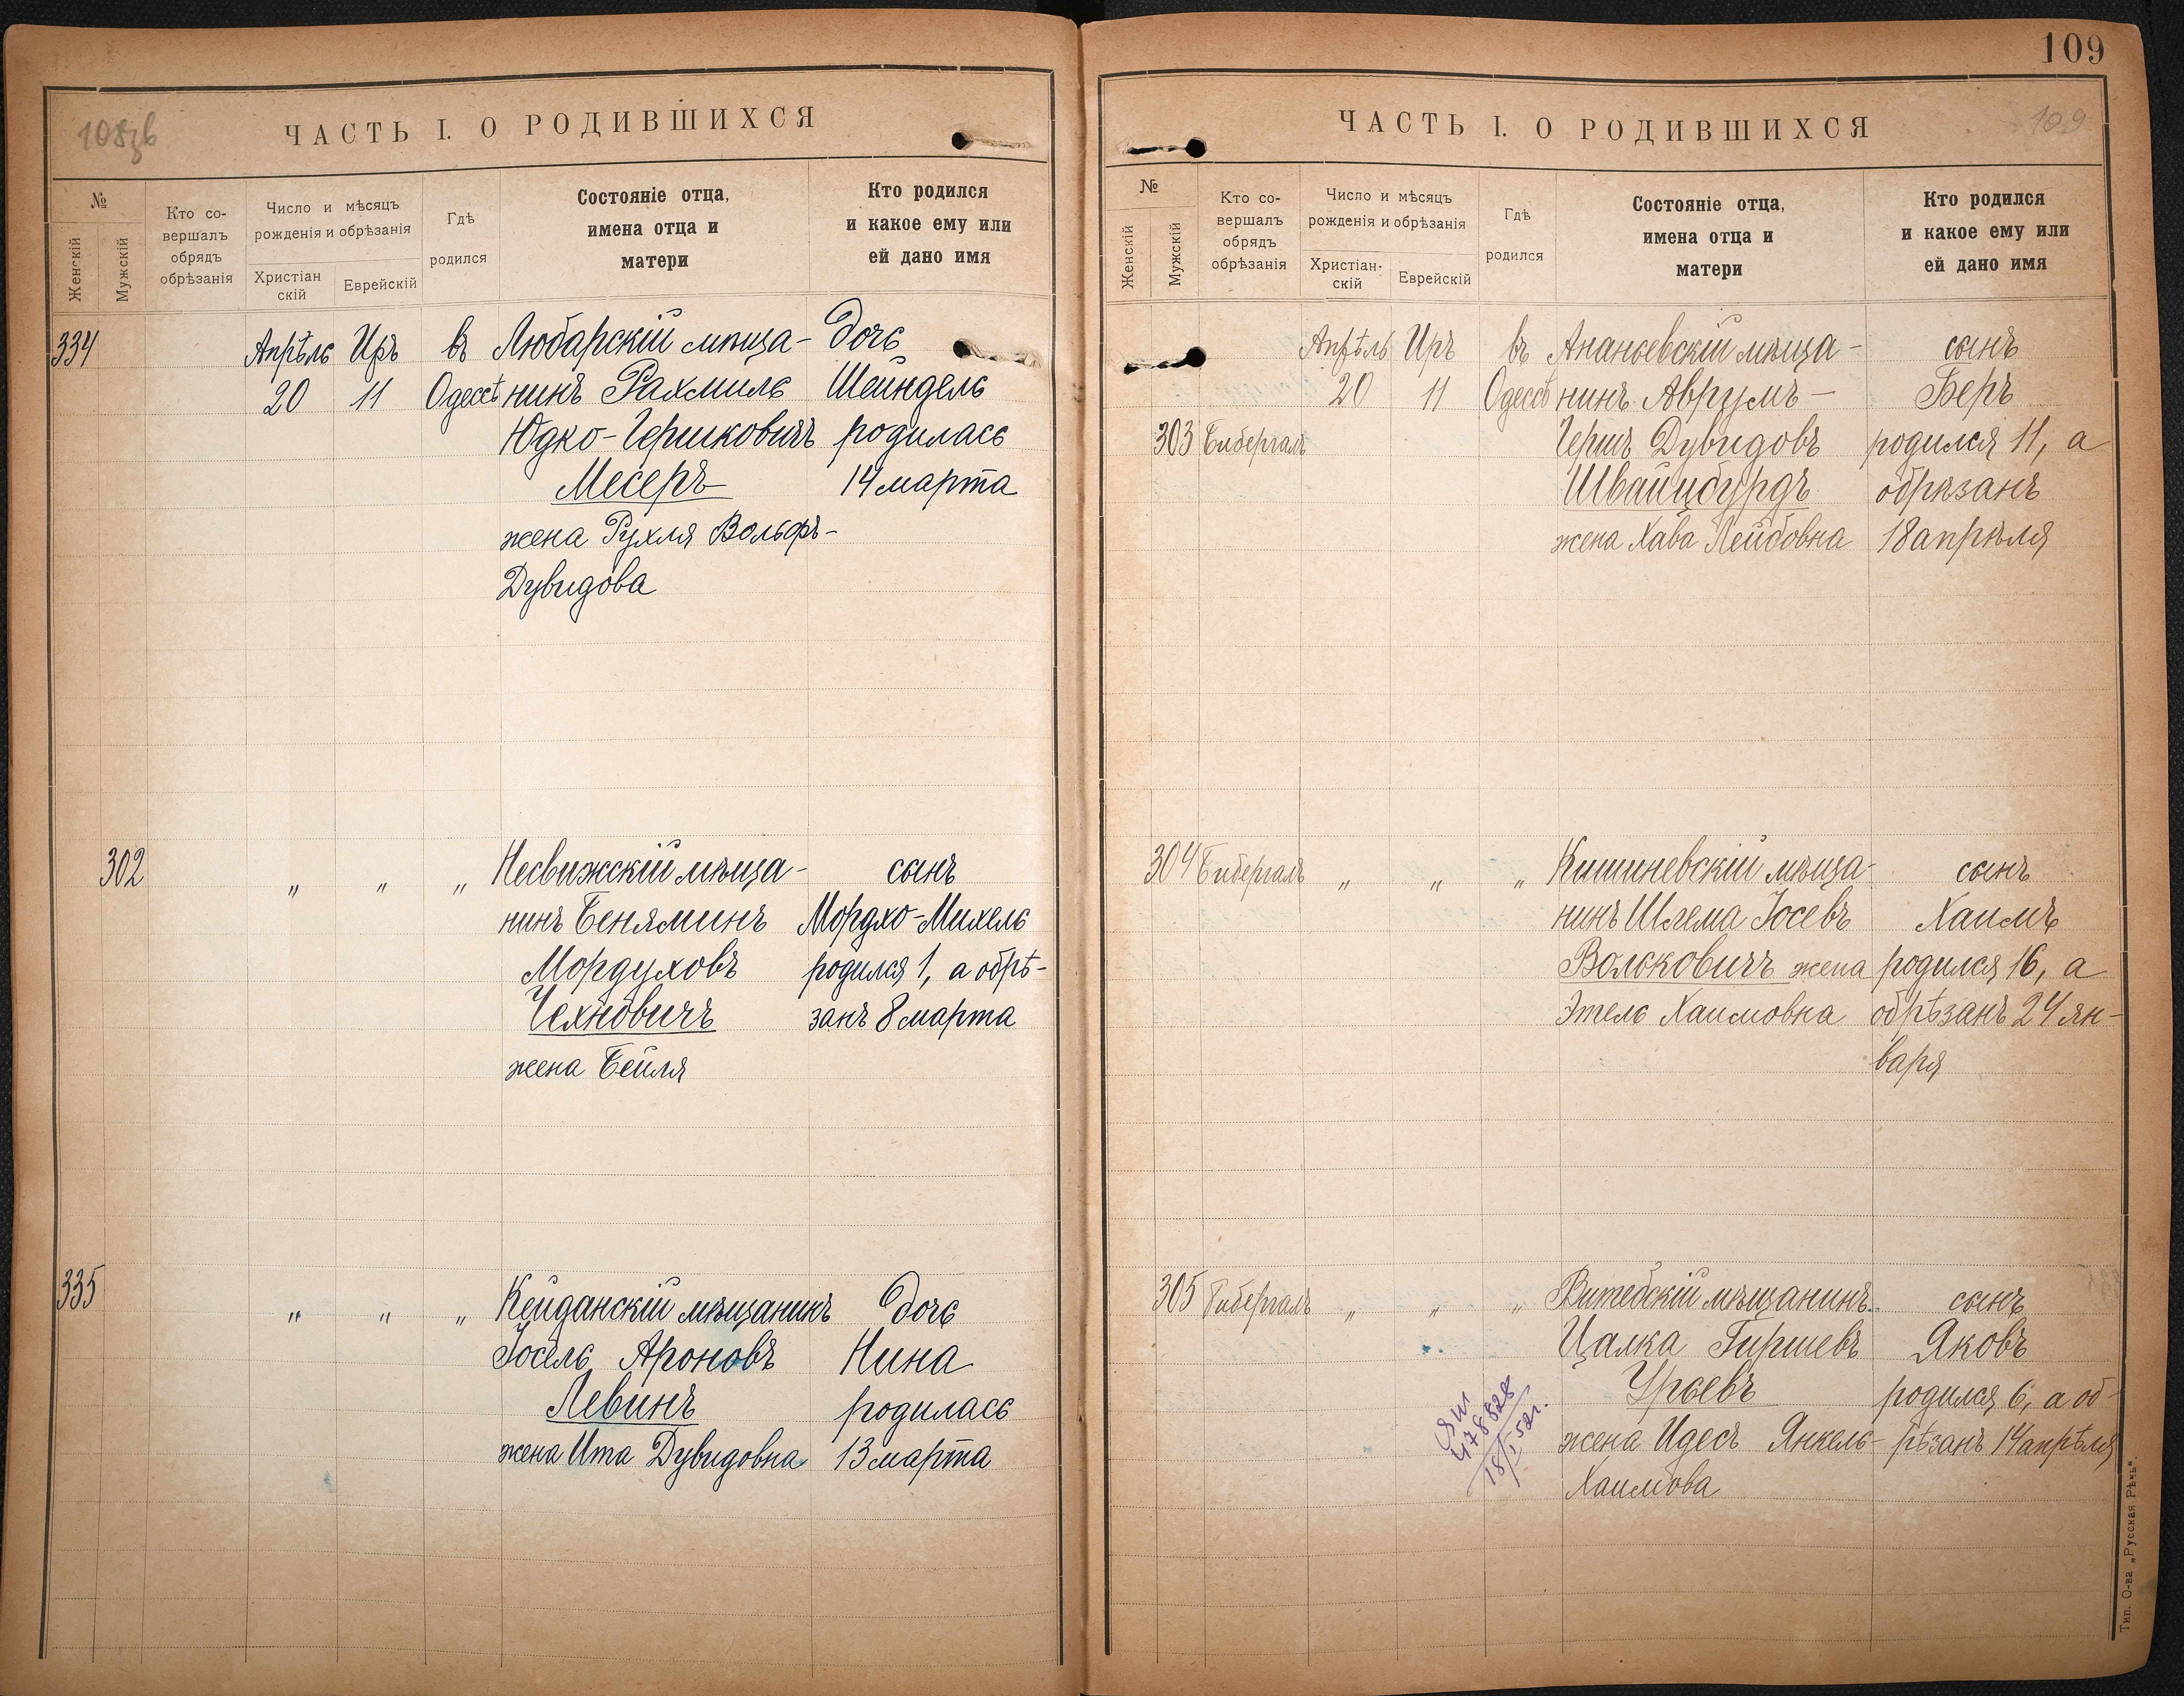 108зв
ЧАСТЬ I. О РОДИВШИХСЯ
№
Женскій
Мужскій
Кто со-
вершалъ
обрядъ
обрѣзанія
Число и мѣсяцъ
рожденія и обрѣзанія
Христіан
скій
Еврейскій
Гдѣ
родился
Состояніе отца,
имена отца и
матери
Кто родился
и какое ему или
ей дано имя
334 Апрѣль Иръ въ Любарскій мѣща- дочь
20 11 Одессѣ нинъ Рахмиль Шейндель
Юдко-Гершковичъ родилась
Месеръ 14 марта
жена Рухля Вольфъ-
Дувидова
302 " " " Несвижскій мѣща- сынъ
нинъ Беняминъ Мордхо-Михель
Мордуховъ родился 1, а обрѣ-
Чехновичъ занъ 8 марта
жена Бейля
335 " " " Кейданскій мѣщанинъ дочь
Іосель Ароновъ Нина
Левинъ родилась
жена Ита Дувидовна 13 марта
109
ЧАСТЬ I. О РОДИВШИХСЯ
109
№
Женскій
Мужскій
Кто со-
вершалъ
обрядъ
обрѣзанія
Число и мѣсяцъ
рожденія и обрѣзанія
Христіан-
скій
Еврейскій
Гдѣ
родился
Состояніе отца,
имена отца и
матери
Кто родился
и какое ему или
ей дано имя
Апрѣль Иръ въ Ананьевскій мѣща- сынъ
20 11 Одессѣ нинъ Аврумъ- Беръ
303 Бибергалъ Гершъ Дувидовъ родился 11, а
Швайцбурдъ обрѣзанъ
жена Хава Лейбовна 18 апрѣля
304 Бибергалъ " " " Кишиневскій мѣща- сынъ
нинъ Шлема Іосевъ Хаимъ
Волсковичъ жена родился 16, а
Этель Хаимовна обрѣзанъ 24 ян-
варя
305 Бибергалъ " " " Витебскій мѣщанинъ сынъ
Цалка Гиршевъ Яковъ
Урьевъ родился 6, а об-
жена Идесъ Янкель- рѣзанъ 14 апрѣля
Хаимова
478828
18/I 52г.
Тип. О-ва „Русская Рѣчь".